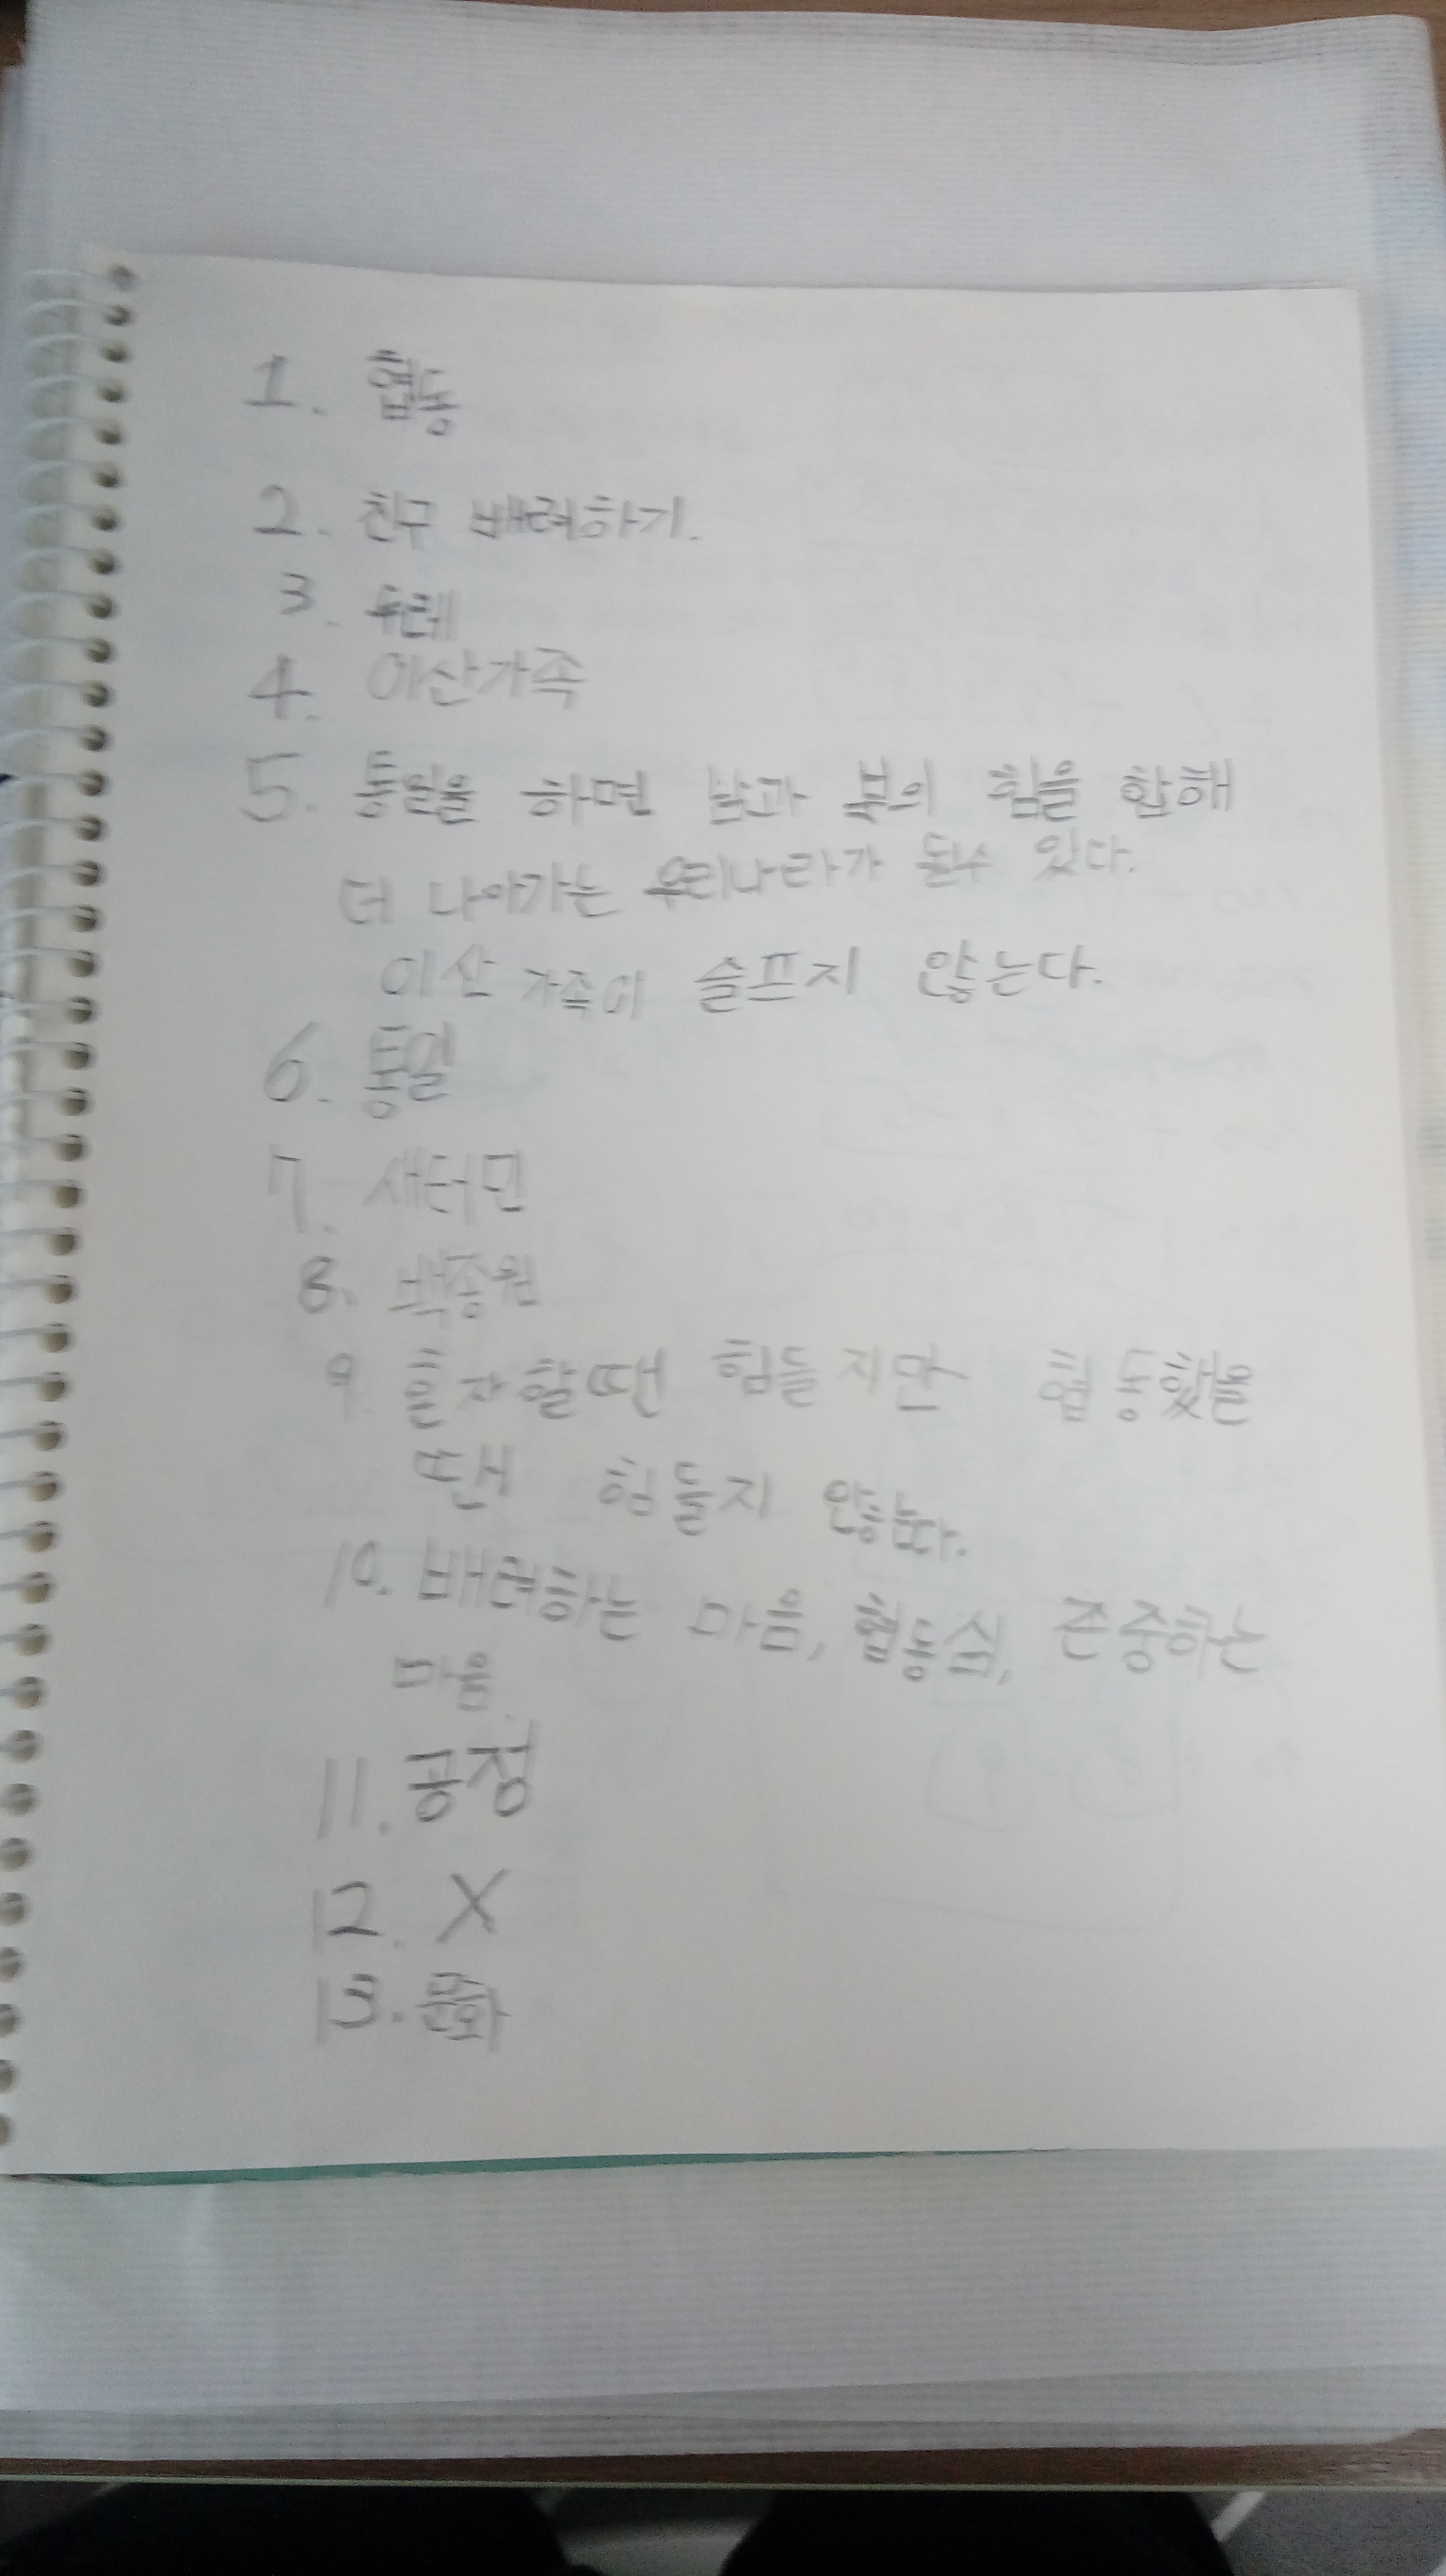 1. 협동
2. 친구 배려하기.
3. 두레
4. 이산가족
5. 통일을 하면 남과 북의 힘을 합해
더 나아가는 우리나라가 될수 있다.
이산 가족이 슬프지 않는다.
6. 통일
7. 새터민
8. 백종원
9. 혼자할땐 힘들지만 협동했을
땐 힘들지 않는다.
10. 배려하는 마음, 협동심, 존중하는
마음.
11. 공정
12. X
13. 문화